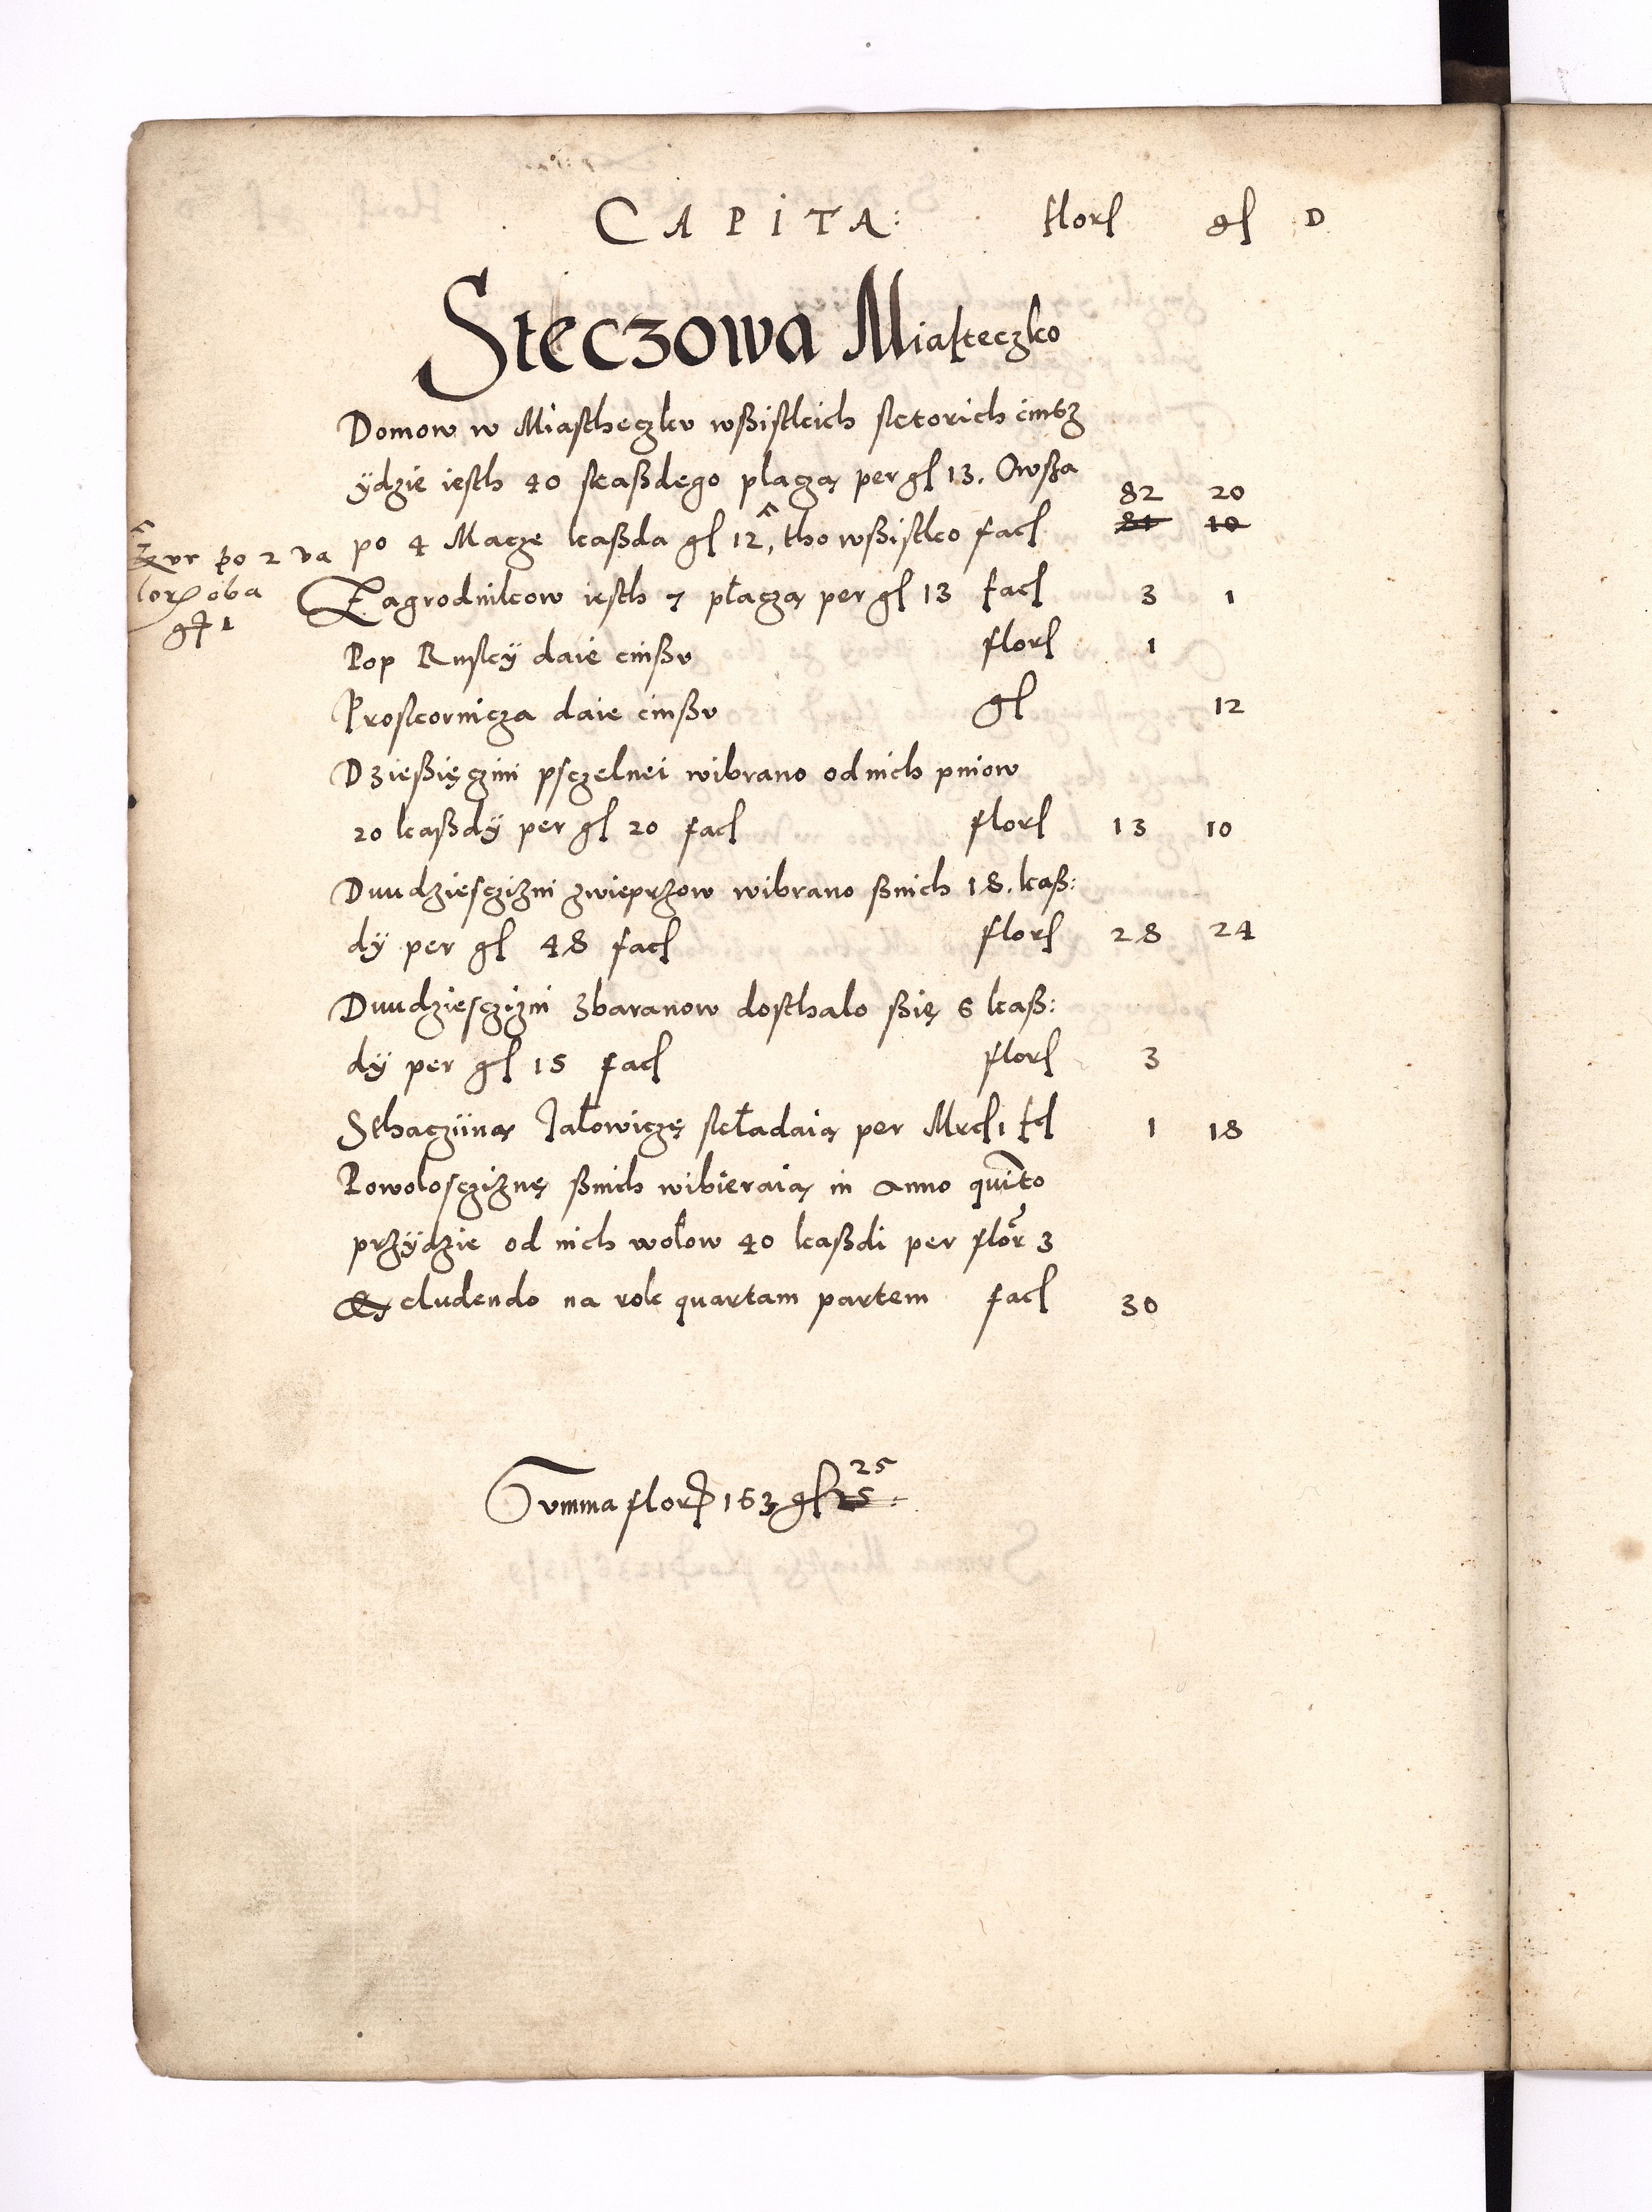 CAPITA: florſ gſ D
Steczowa Miasteczko
Domow w Miastheczkv wßistkich sktorich cinß
ÿdzie iesth 40 skaßdego placzą per gſ 13. Owßa
po 4 Macze kaßda gſ 12, tho wßistko facſ 82 20
81 10
kur po 2 va
lorę oba
gſ 1
Zagrodnikow iesth 7 płaczą per gſ 13 facſ 3 1
Pop Ruskÿ daie cinßv florſ 1
Proskornicza daie cinßv gſ 12
Dzießięczini psczelnei wibrano od nich pniow
20 kaßdÿ per gſ 20 facſ florſ 13 10
Dwudziesczizni zwieprzow wibrano ßnich 18. kaß:
dÿ per gſ 48 facſ florſ 28 24
Dwudziesczizni zbaranow dosthalo ßię 6 kaß:
dÿ per gſ 15 facſ florſ 3
Sthacziiną Jałowiczę składaią per Mrcſ 1 fcſ 1 18
Powoloscziznę ßnich wibieraią in anno quinto
przÿdzie od nich wołow 40 kaßdi per flor 3
cludendo na rok quartam partem facſ 30
Summa florſ 163 gſ 25